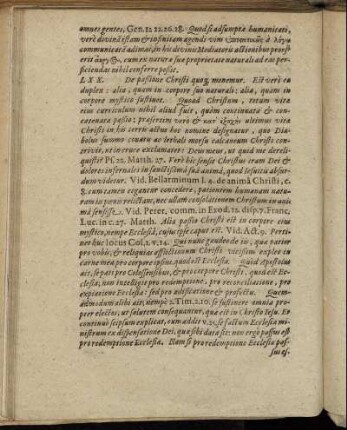 omnes gentes, Gen. 12. 22. 26. 28. Quodsi adsumpta humanitati,
verè divina istam & infinitam agendi vim ὑποστατικῶς ὁ λόγος
communicatâ adimas, in his devinis Mediatoris actionibus prorsꝰ
erit ἀεργὸς &, cum ex natura sua proprietate naturali ad eas per-
ficiendas nihil conferre possit.
LXX. De passione Christi quoq; monemur. Est verò ea
duplex: alia, quam in corpore suo naturali; alia, quam in
corpore mystico sustinet. Quoad Christum, totum vitæ
ejus curriculum nihil aliud fuit, quàm continuata & con-
catenata passio; præsertim verò & κατ᾽ ἐξοχὴν ultimus vitæ
Christi in his terris actus hoc nomine designatur, quo Dia-
bolus summo cruatu ac lethali morsu calcaneum Christi con-
trivit, ut in cruce exclamaret: Deus meus, ut quid me dereli-
quisti? Ps. 22. Matth. 27. Verè hîc sensit Christus iram Dei &
dolores infernales in sanctissimâ suâ animâ, quod Jesuitis absur-
dum videtur. Vid. Bellarminum l. 4. de animâ Christi, c.
8. cum tamen cogantur concedere, patientem humanam natu-
ram in pœnis relictam, nec ullam consolationem Christum in ani-
mâ sensisse. Vid. Perer. comm. in Exod. 12. disp. 7. Franc.
Luc. in c. 27. Matth. Alia passio Christi est in corpore ejus
mystico, nempe Ecclesiâ, cujus ipse caput est. Vid. Act. 9. Perti-
net huc locus Col. 1. v. 24. Qui nunc gaudeo de iis, quæ patior
pro vobis, & reliquias afflictionum Christi vicissim expleo in
carne mea pro corpore ipsius, quod est Ecclesia. quod Apostolus
ait, se pati pro Colossensibus, & pro corpore Christi, quod est Ec-
clesia, non intelligit pro redemptione, pro reconciliatione, pro
expiatione Ecclesiæ; sed pro ædificatione & profectu. Quem-
admodum alibi ait, nempe 2. Tim. 2. 10. se sustinere omnia pro-
pter electos, ut salutem consequantur, quæ est in Christo Jesu. Et
continuò seipsum explicat, cum addit v. 25. se factum Ecclesiæ mi-
nistrum ex dispensatione Dei, quæ sibi data sit: non ergò passus est
pro redemptione Ecclesiæ. Nam si pro redemptione Ecclesiæ pas-
sus es-